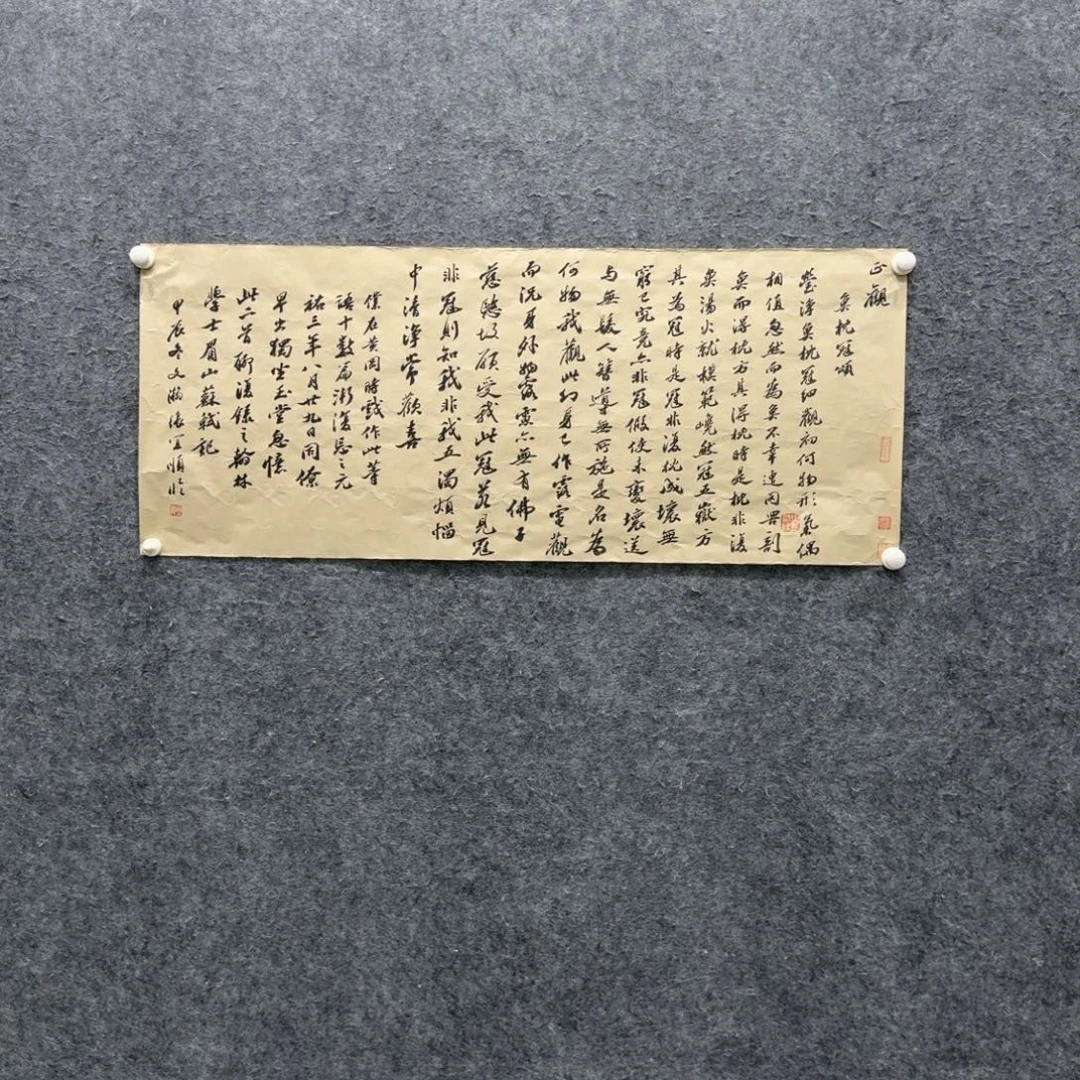 正觀
魚枕冠頌
瑩淨魚枕冠細觀初何物形氣偶
相值忽然而為魚不幸遭罔罟剖
魚而得枕方其得枕時是枕非復
魚湯火就模範嶢然冠五嶽方
其為冠時是冠非復枕成壞無
窮已究竟亦非冠假使未變壞送
与無髮人簪導無所施是名為
何物我觀此幻身已作露電觀
而況身外物露電亦無有佛子
慈愍故願受我此冠若見冠
非冠則知我非我五濁煩惱
中清淨常歡喜
僕在黃岡時戲作此等
語十數篇漸復忘之元
祐三年八月廿九日同僚
早出獨坐玉堂忽憶
此二首聊復錄之翰林
學士眉山蘇軾記
甲辰冬文瀚張軍順臨